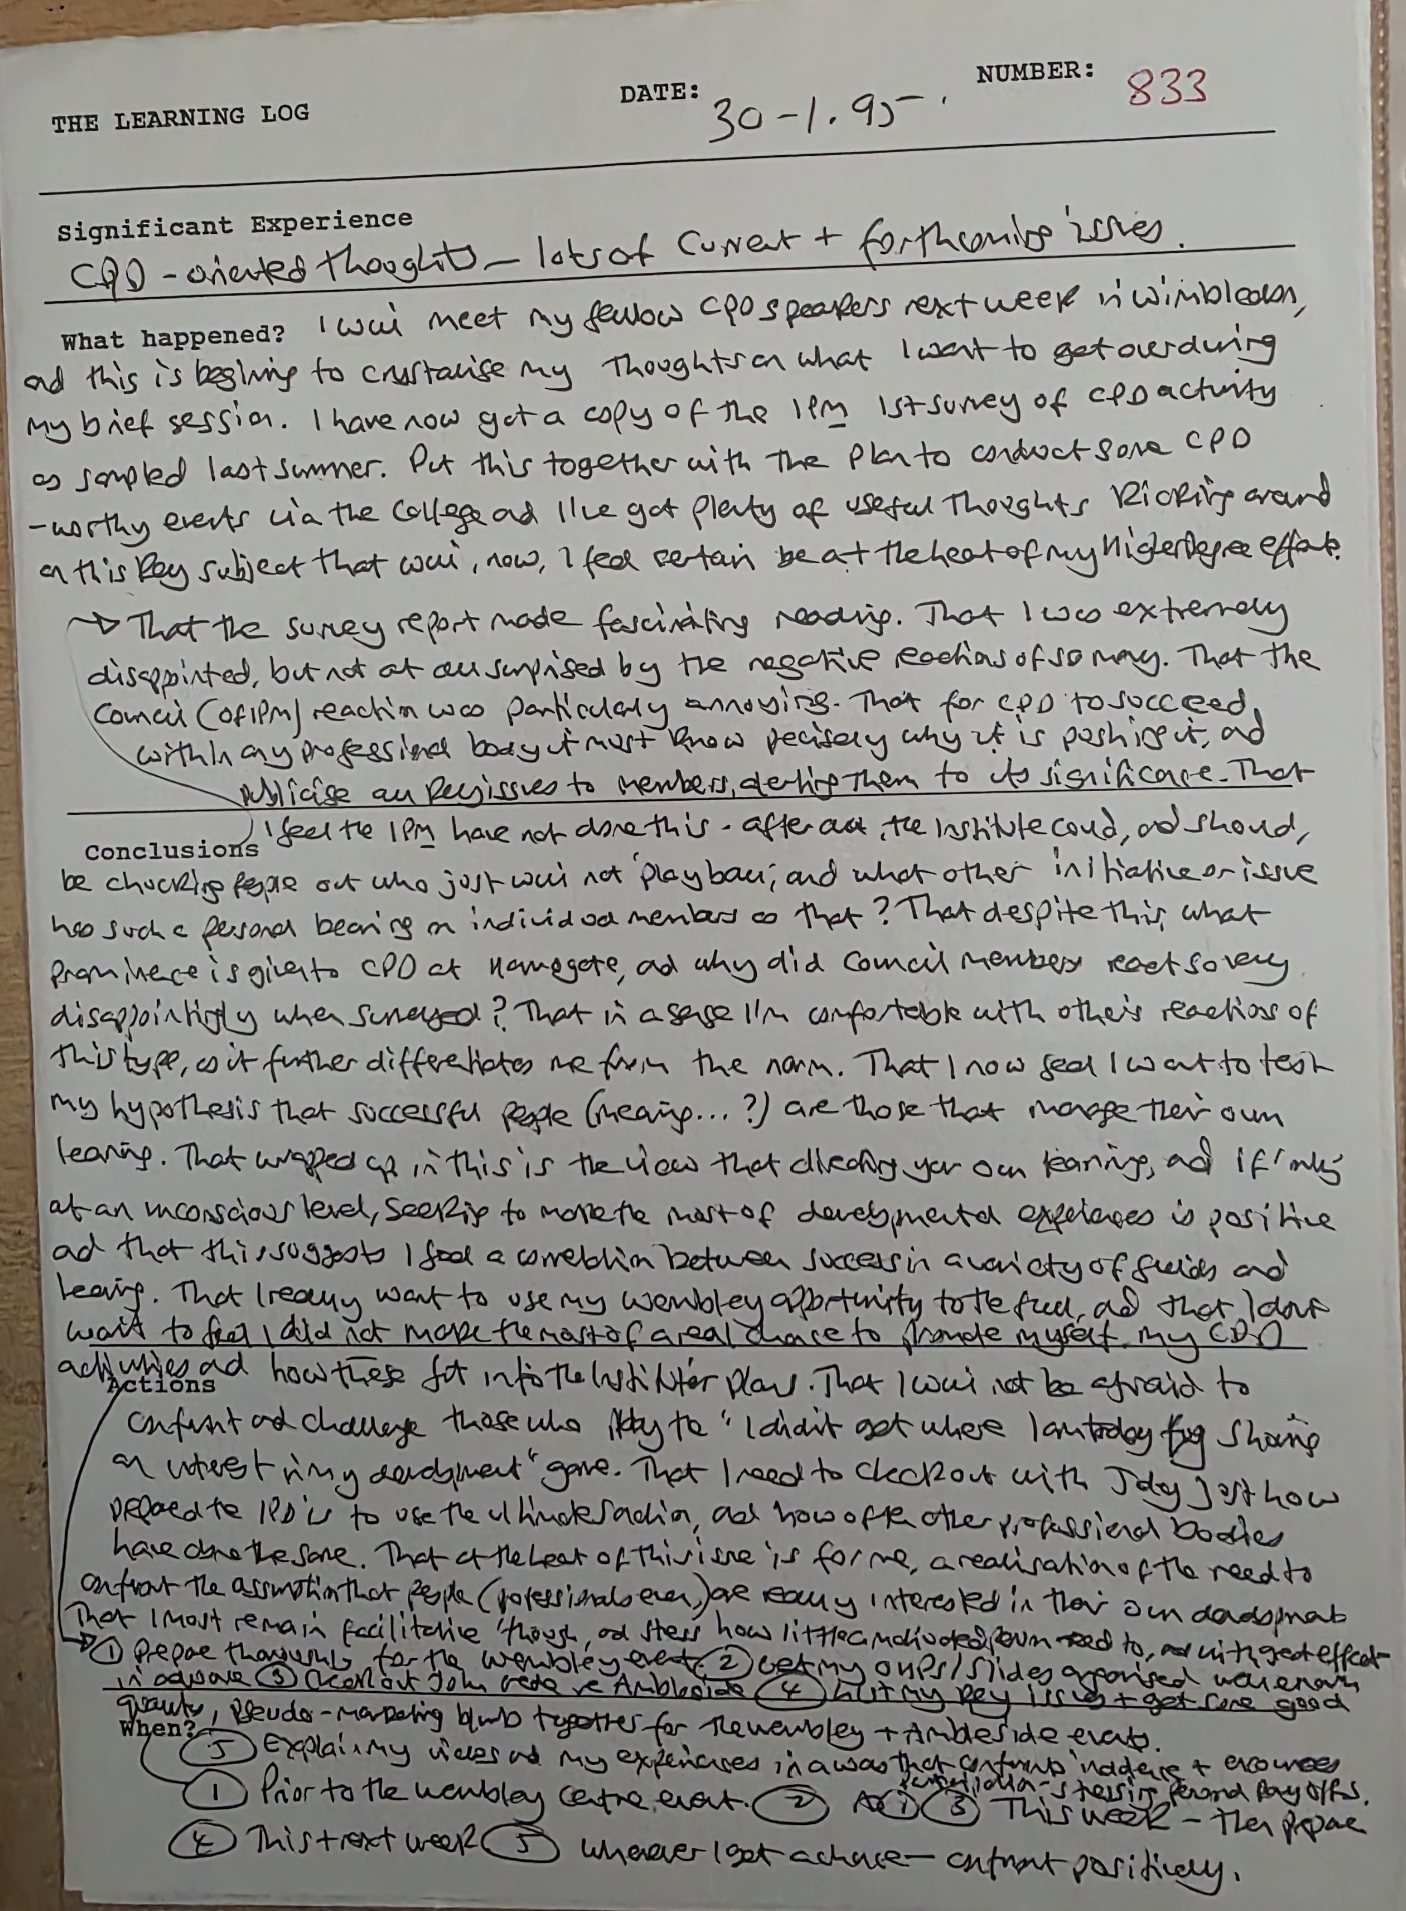 THE LEARNING LOG
DATE: 30-1.95.
NUMBER: 833
Significant Experience
CPD - oriented thoughts - lots of current + forthcoming issues.
What happened? I will meet my fellow CPD speakers next week in Wimbledon,
and this is beginning to crystallise my thoughts on what I want to get over during
my brief session. I have now got a copy of the IPM 1st survey of CPD activity
as sampled last summer. Put this together with the plan to conduct some CPD
-worthy events via the College and I've got plenty of useful thoughts kicking around
on this key subject that will, now, I feel certain be at the heart of my Higher Degree efforts.
→ That the survey report made fascinating reading. That I was extremely
disappointed, but not at all surprised by the negative reactions of so many. That the
Council (of IPM) reaction was particularly annoying. That for CPD to succeed
within any professional body it must know precisely why it is pushing it, and
publicise all key issues to members, alerting them to its significance. That
I feel the IPM have not done this - after all, the Institute could, and should,
Conclusions
be chucking people out who just will not 'play ball', and what other initiative or issue
has such a personal bearing on individual members as that? That despite this, what
prominence is given to CPD at Harrogate, and why did Council members react so very
disappointingly when surveyed? That in a sense I'm comfortable with other's reactions of
this type, as it further differentiates me from the norm. That I now feel I want to test
my hypothesis that successful people (meaning...?) are those that manage their own
learning. That wrapped up in this is the view that directing your own learning, and if only
at an unconscious level, seeking to make the most of developmental experiences is positive
and that this suggests I feel a correlation between success in a variety of fields and
learning. That I really want to use my Wembley opportunity to the full, and that I don't
want to feel I did not make the most of a real chance to promote myself, my CPD
activities and how these fit into the Institute's plans. That I will not be afraid to
Actions
confront and challenge those who play the "I didn't get where I am today by showing
an interest in my development" game. That I need to check out with Judy just how
prepared the IPD is to use the ultimate sanction, and how often other professional bodies
have done the same. That at the heart of this issue is for me, a realisation of the need to
confront the assumption that people (professionals even,) are really interested in their own development
That I must remain facilitative though, and stress how little a motivated person need to, and with great effect
→ ① Prepare thoroughly for the Wembley event. ② Get my OHPs/slides organised well enough
in advance ③ Check out John re Ambleside ④ List my key issues + get some good
quality, pseudo-marketing blurb together for the Wembley + Ambleside events.
When?
⑤ Explain my views and my experiences in a way that confronts + encourages
- stressing personal pay offs.
① Prior to the Wembley Centre event. ② As ① ③ This week - then prepare
④ This + next week ⑤ Whenever I get a chance - confront positively.